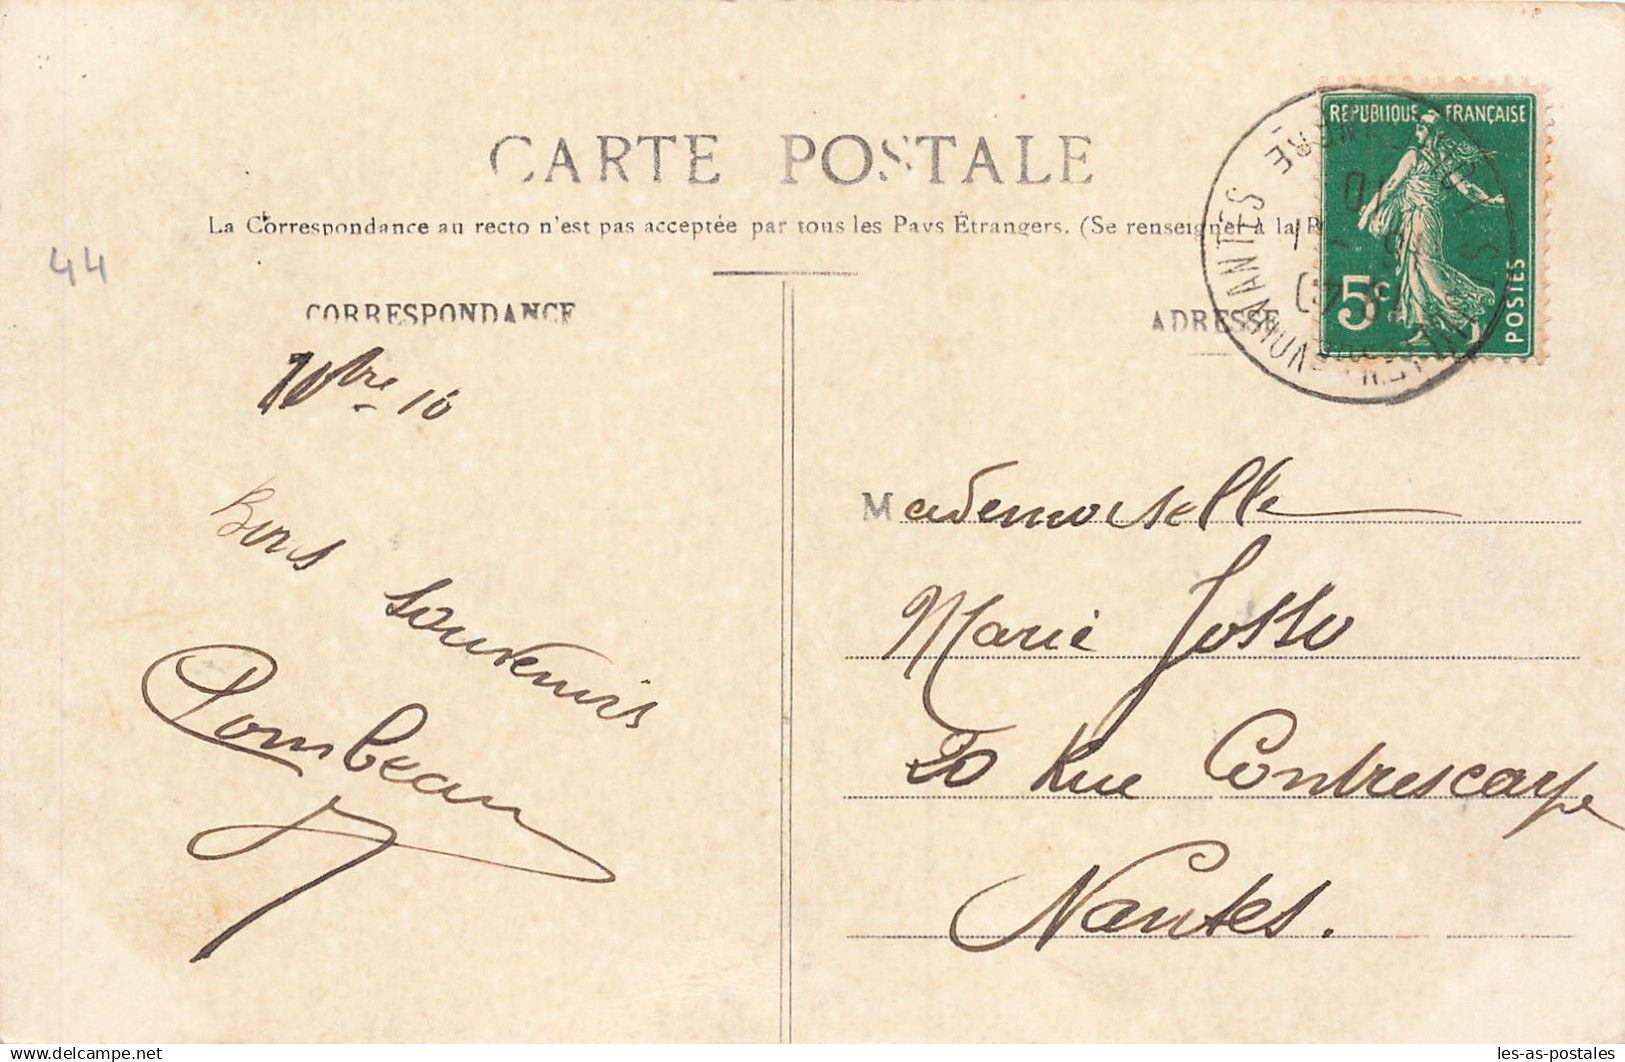 CARTE POSTALE
La Correspondance au recto n'est pas acceptée par tous les Pays Étrangers. (Se renseigner à la
44
CORRESPONDANCE
bre 10
Bons
souvenirs
Pombeau
REPUBLIQUE FRANÇAISE
5c
POSTES
NANTES
ADRESSE
Mademoiselle
Marie Josso
20 Rue Contrescarpe
Nantes.
www.delcampe.net
les-as-postales